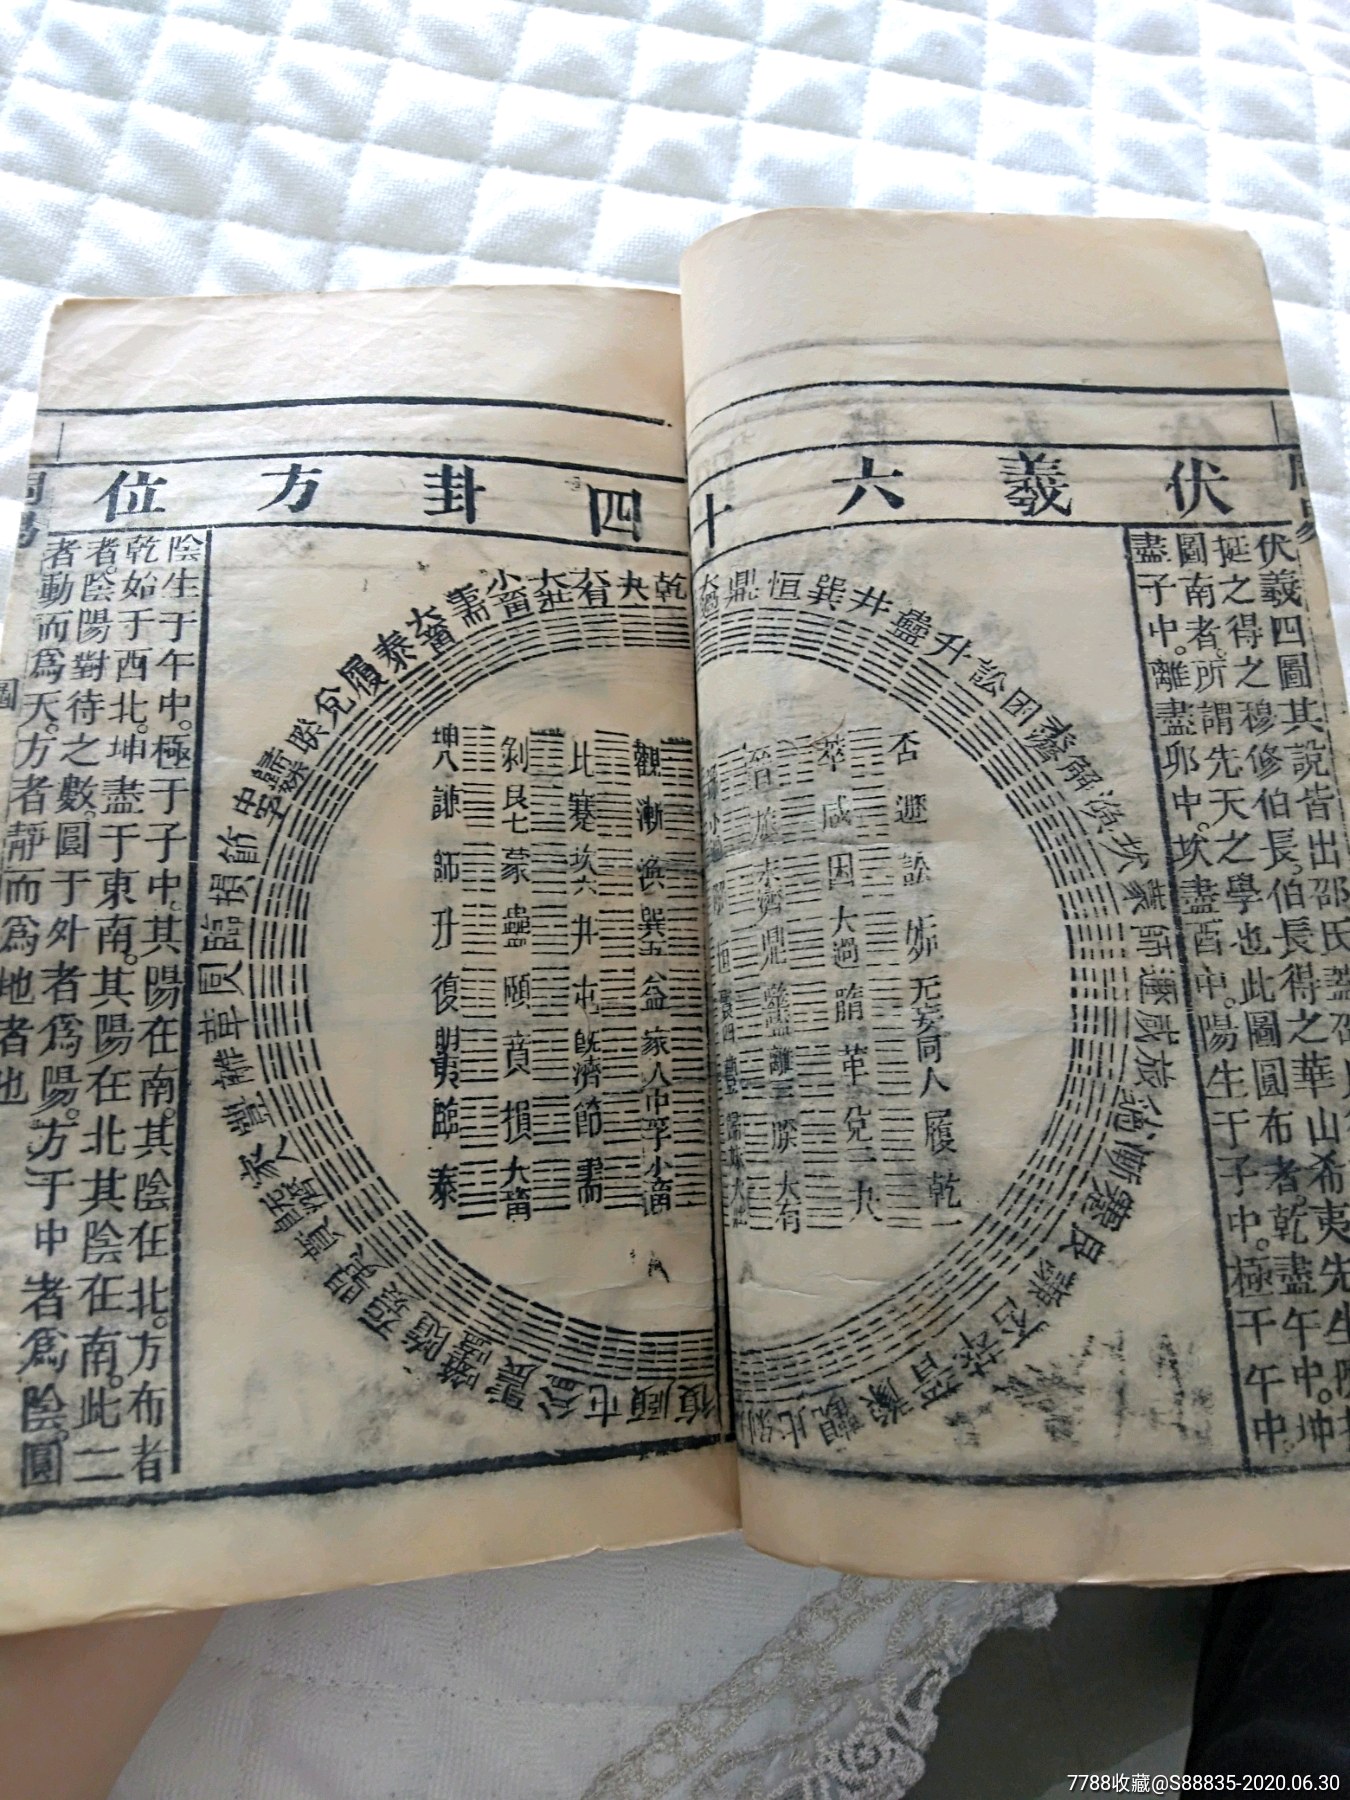 伏羲六十四卦方位
伏羲四圖其說皆出邵氏蓋邵
挺之得之穆修伯長伯長得之華山希夷先生
圖南者。所謂先天之學也此圖圓布者。乾盡午中。坤
盡子中。離盡卯中。坎盡酉中。陽生于子中。極于午中
陰生于午中。極于子中。其陽在南。其陰在北。方布者
乾始于西北。坤盡于東南。其陽在北其陰在南。此二
者。陰陽對待之數。圓于外者為陽。方于中者為陰。圓
者動而為天。方者靜而為地者也
乾 夬 大有 大壯 小畜 需 大畜 泰 履 兌 睽 歸妹 中孚 節 損 臨 同人 革 離 豐 家人 既濟 賁 明夷 无妄 隨 噬嗑 震 益 屯 頤 復
大過 鼎 恒 巽 井 蠱 升 訟 困 未濟 解 渙 坎 蒙 師 遯 咸 旅 小過 漸 蹇 艮 謙 否 萃 晉 豫 觀 比 剝
否 遯 訟 姤 无妄 同人 履 乾一
萃 咸 困 大過 隨 革 兌二
晉 旅 未濟 鼎 噬嗑 離三 睽 大有
觀 漸 渙 巽五 益 家人 中孚 小畜
比 蹇 坎六 井 屯 既濟 節 需
剝 艮七 蒙 蠱 頤 賁 損 大畜
坤八 謙 師 升 復 明夷 臨 泰
圖
7788收藏@S88835-2020.06.30